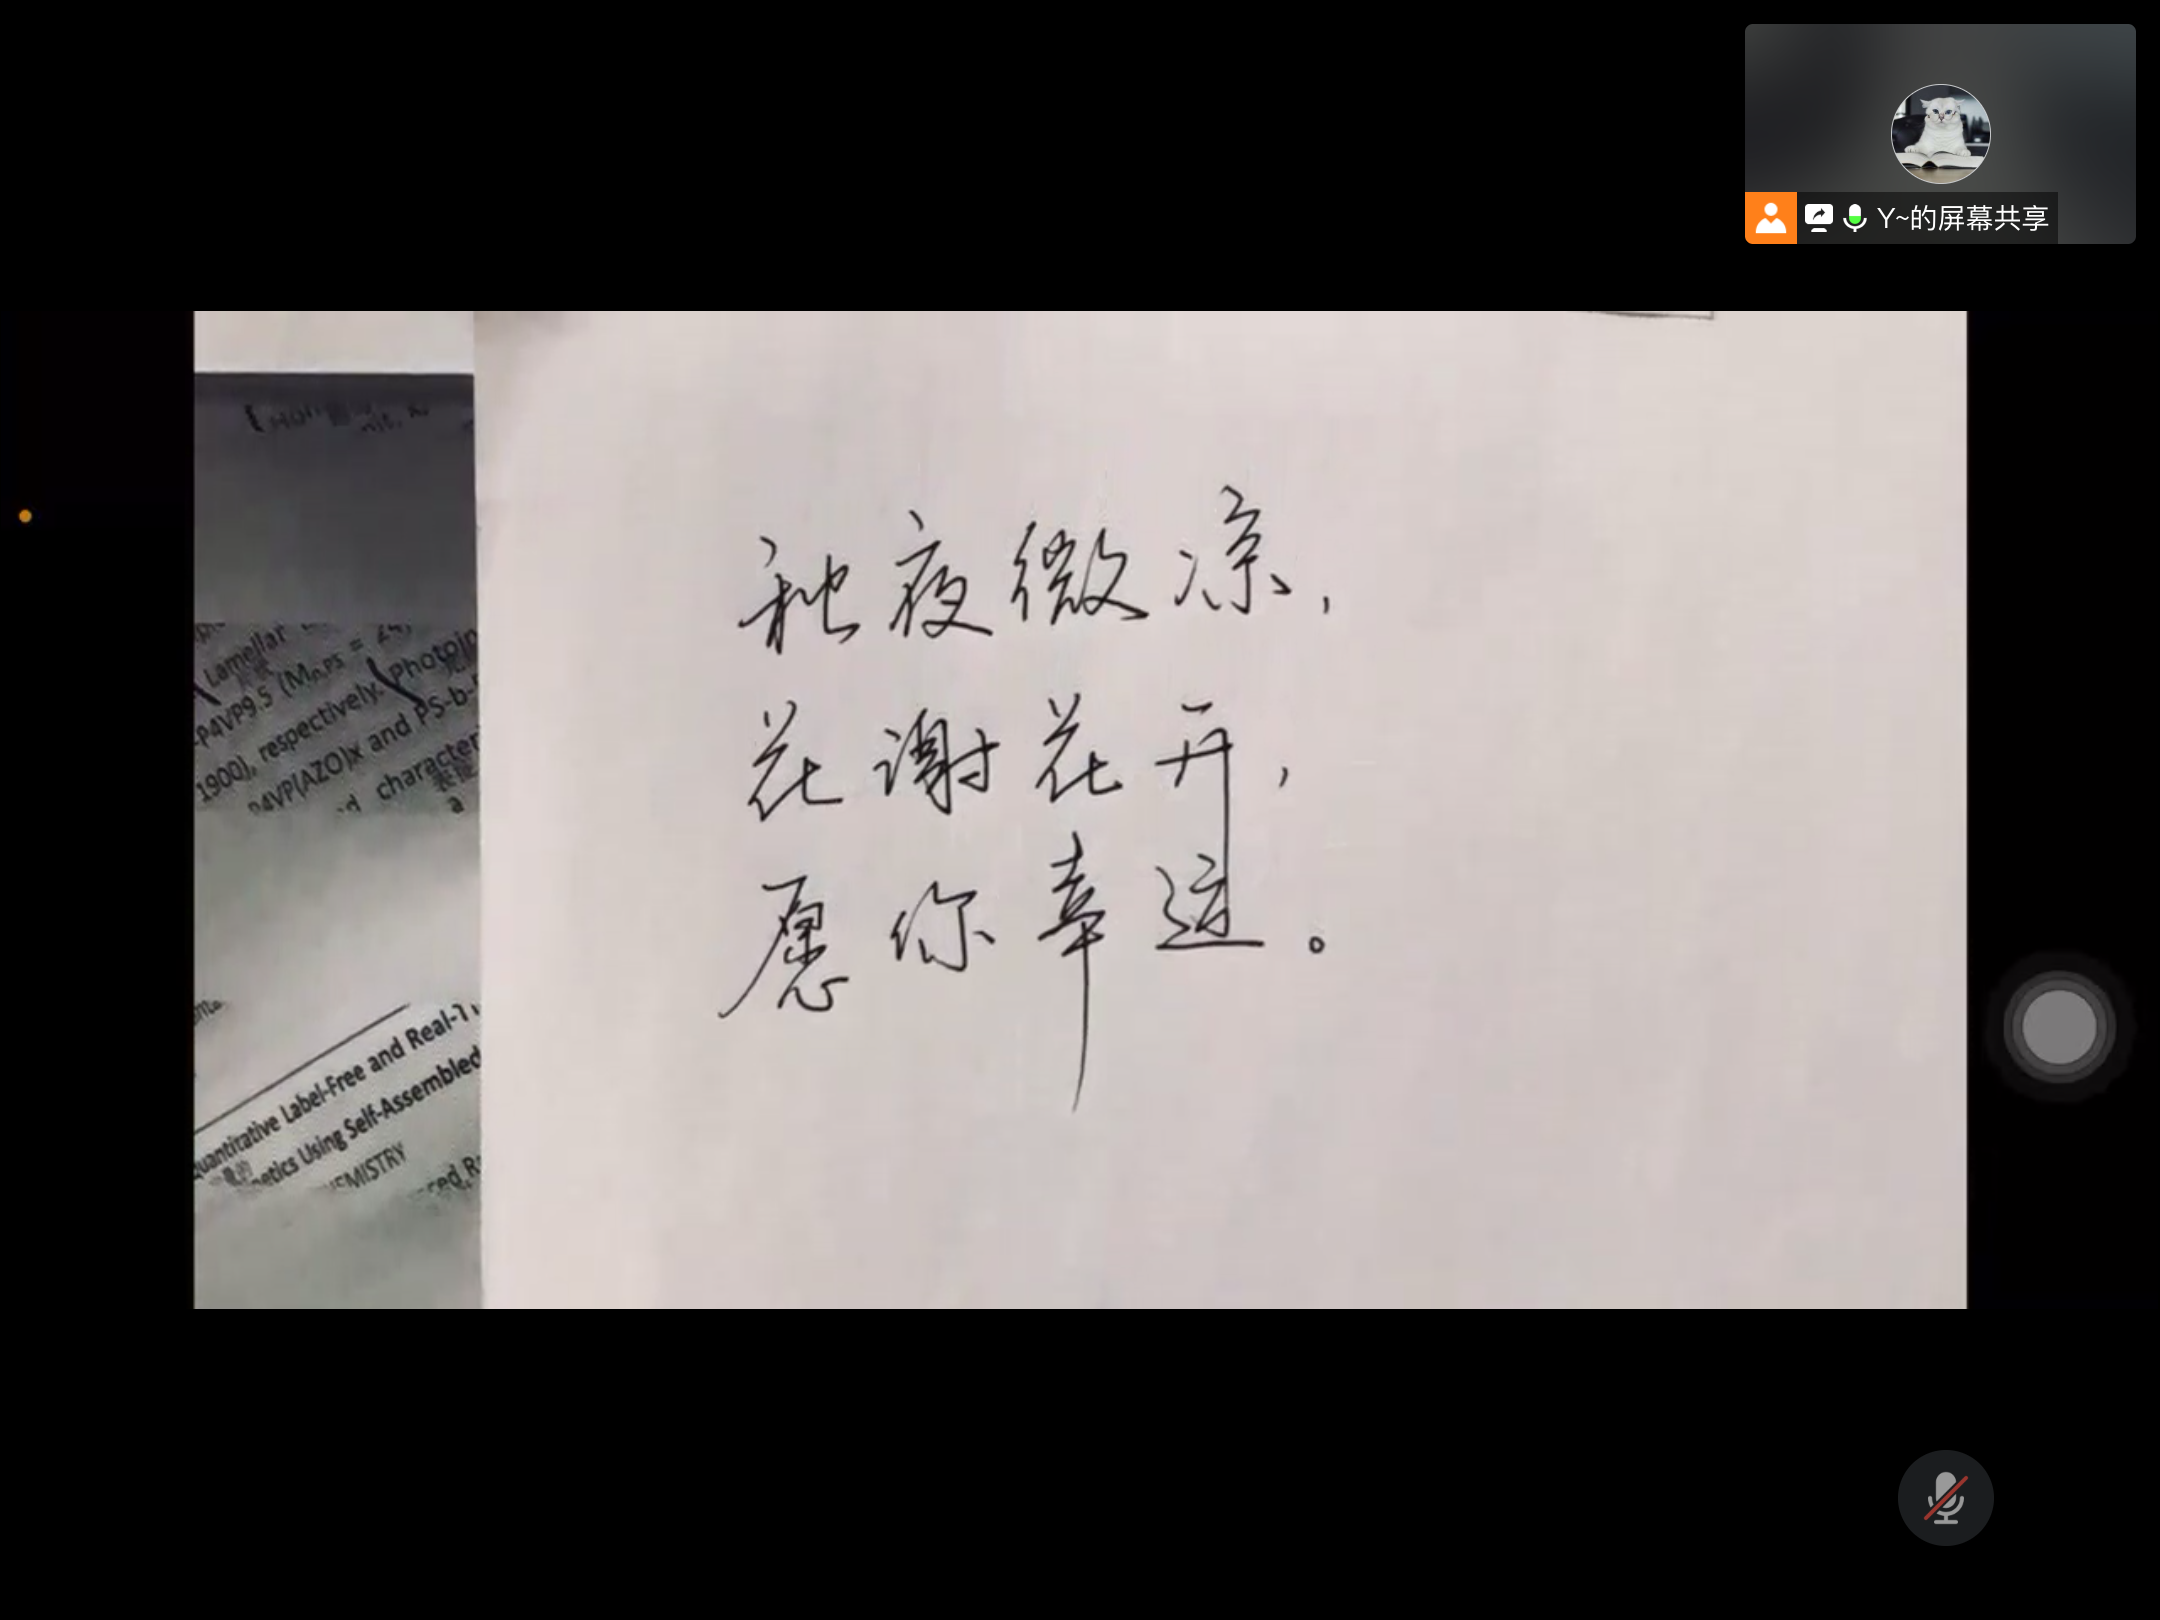 Y~的屏幕共享
秋夜微凉，
花谢花开，
愿你幸运。
Lamellar
-P4VP9.5 (Mn,PS = 24,
1900), respectively. Photoin
P4VP(AZO)x and PS-b-
character
a
Quantitative Label-Free and Real-Ti
netics Using Self-Assembled
HEMISTRY